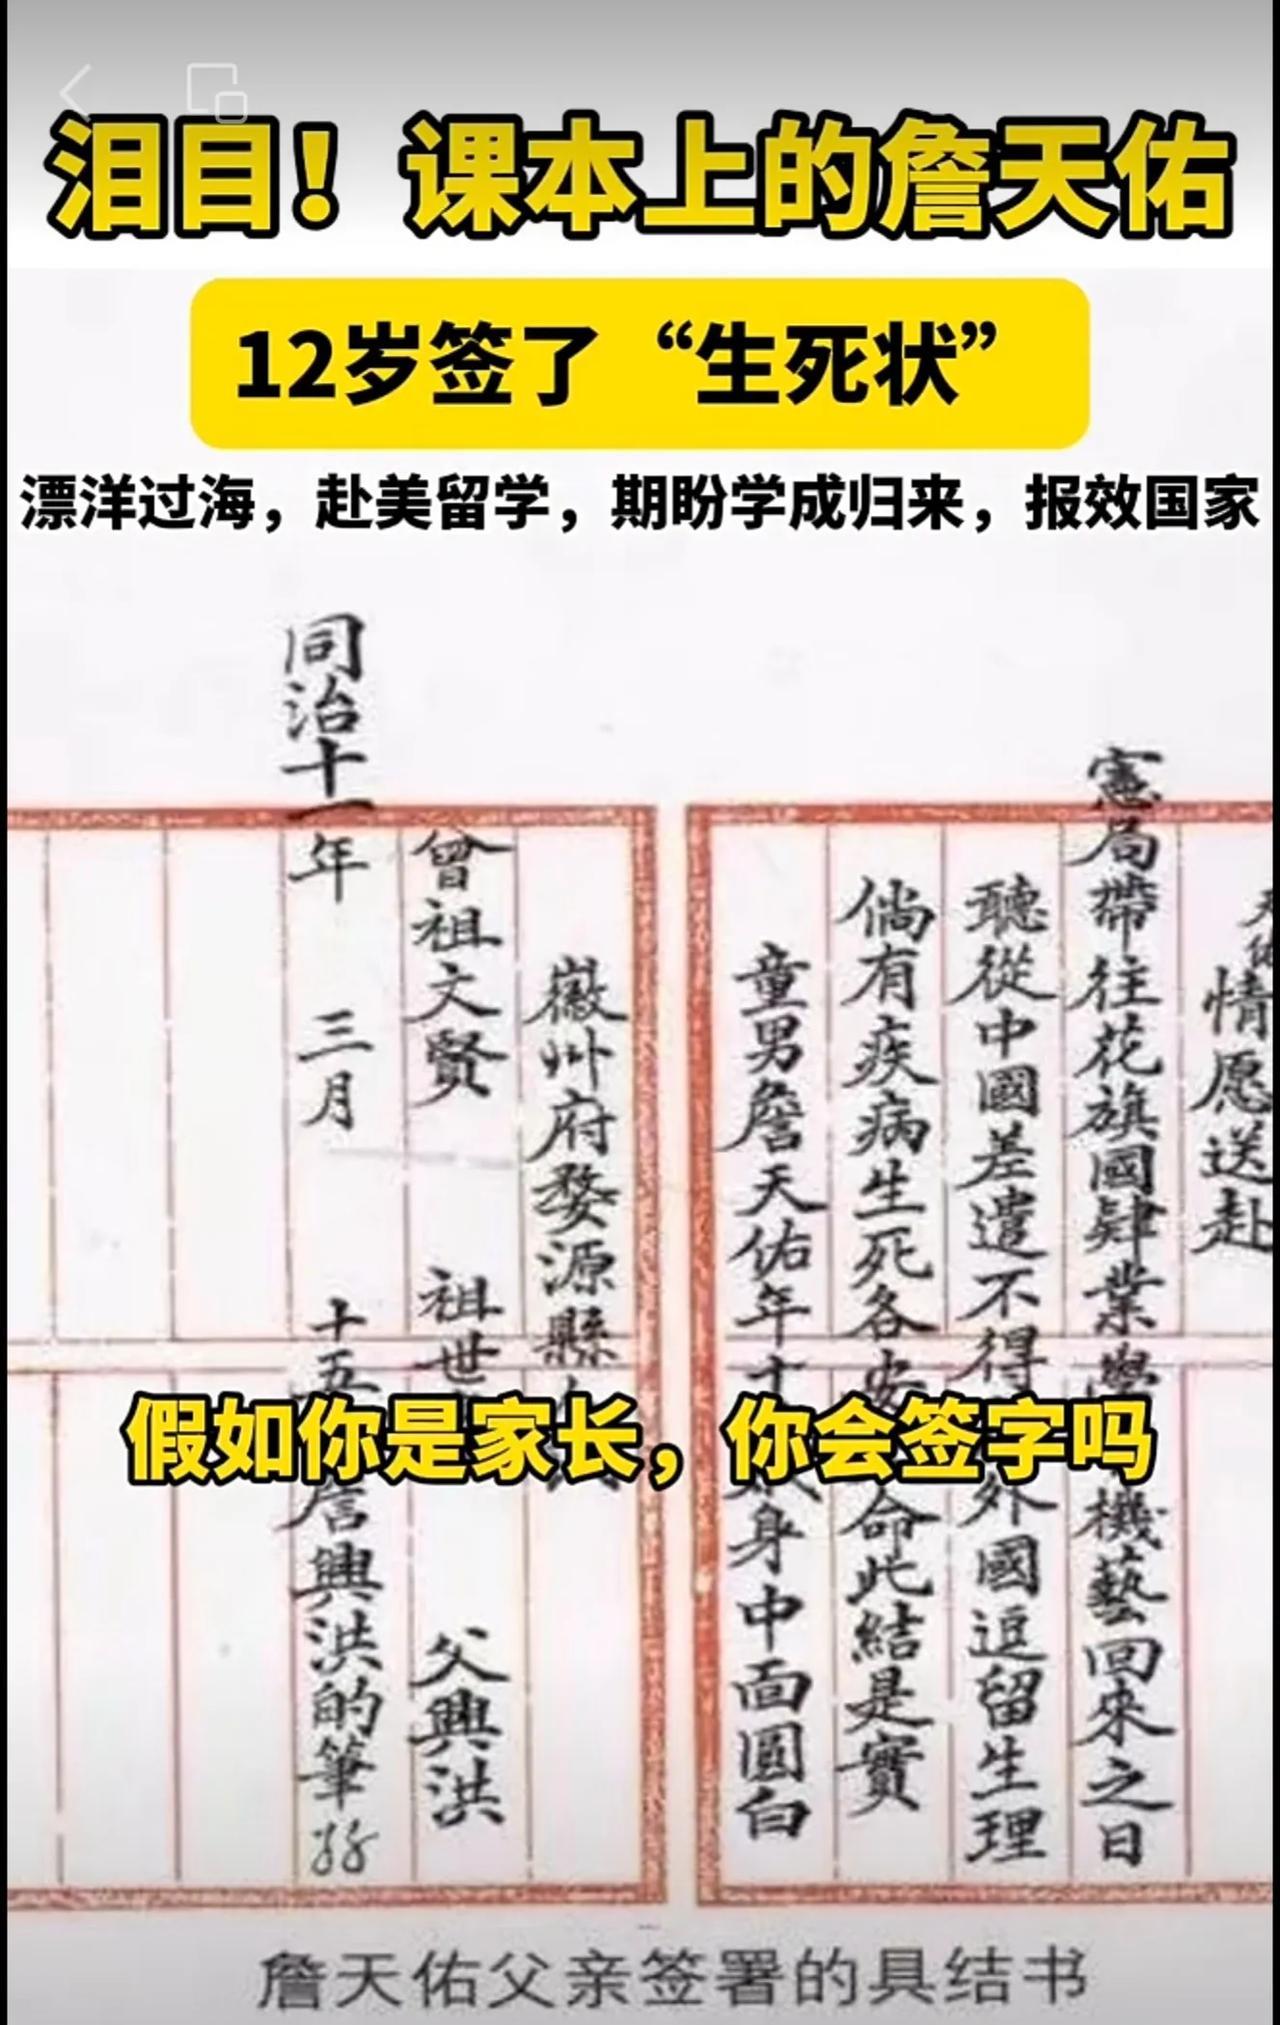 泪目！课本上的詹天佑
12岁签了“生死状”
漂洋过海，赴美留学，期盼学成归来，报效国家
情愿送赴
憲局帶往花旗國肄業學機藝回來之日
聽從中國差遣不得外國逗留生理
倘有疾病生死各安命此結是實
童男詹天佑年十身中面圓白
徽州府婺源縣
曾祖文賢 祖世 父興洪
同治十一年 三月 十五 詹興洪的筆
假如你是家长，你会签字吗
詹天佑父亲签署的具结书